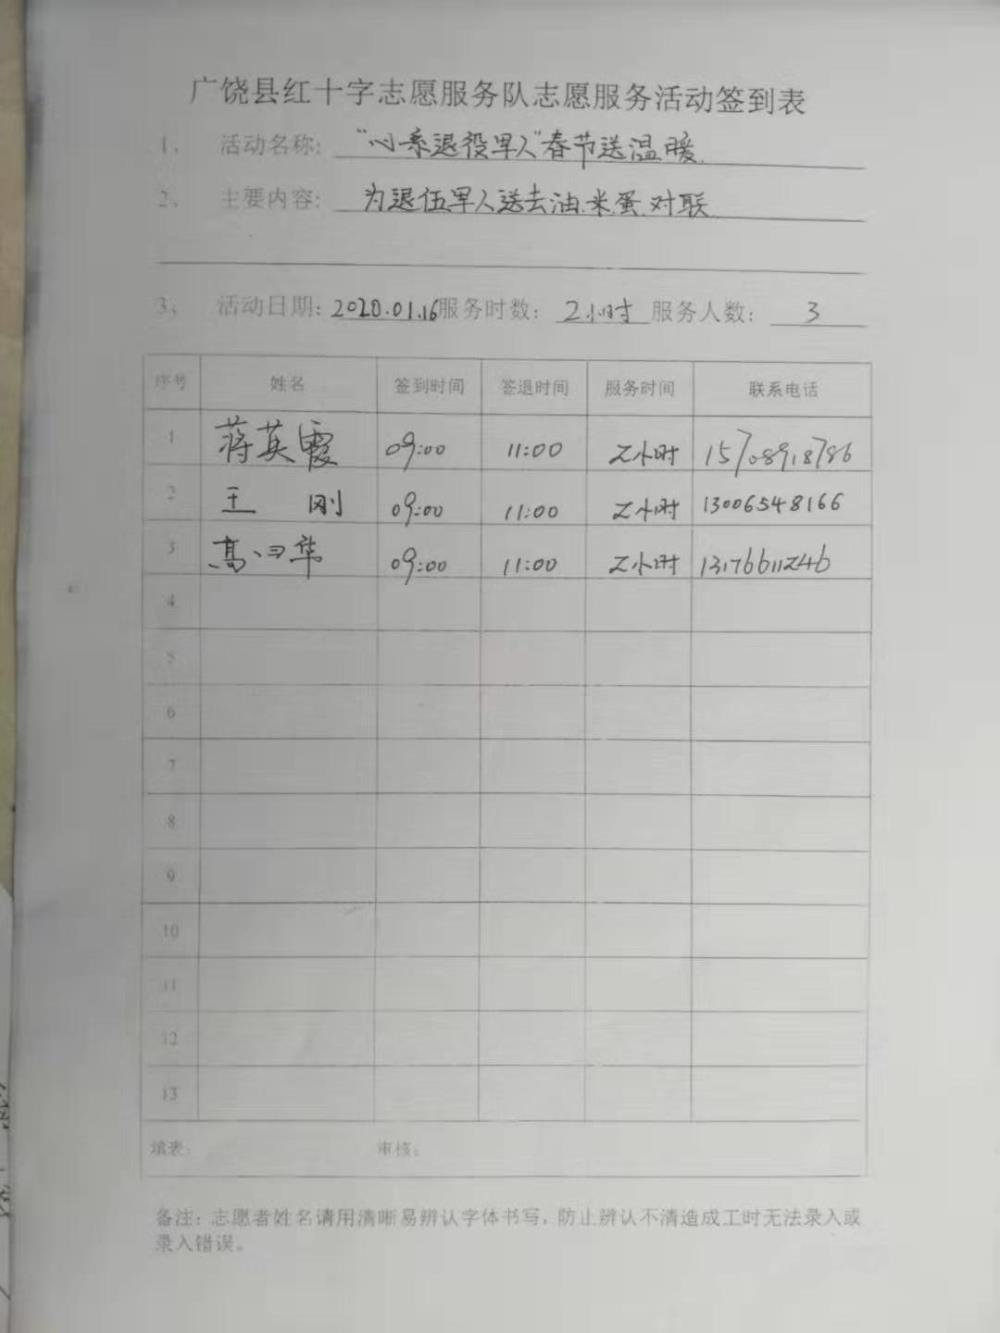 广饶县红十字志愿服务队志愿服务活动签到表
1、 活动名称: “心系退役军人”春节送温暖
2、 主要内容: 为退伍军人送去油.米.蛋.对联
3、 活动日期: 2020.01.16 服务时数: 2小时 服务人数: 3
序号 姓名 签到时间 签退时间 服务时间 联系电话
1 蒋英霞 09:00 11:00 2小时 15708918786
2 王 刚 09:00 11:00 2小时 13006548166
3 高 华 09:00 11:00 2小时 13176611246
4
5
6
7
8
9
10
11
12
13
填表: 审核:
备注: 志愿者姓名请用清晰易辨认字体书写, 防止辨认不清造成工时无法录入或
录入错误。